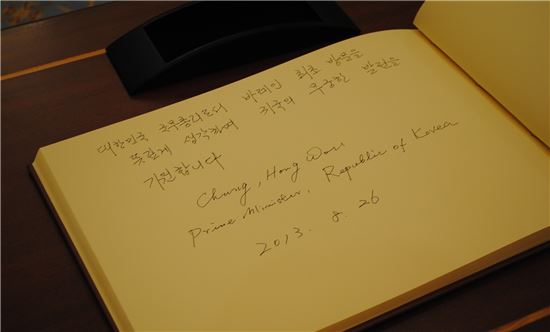 대한민국 국무총리로서 바레인 최초 방문을
뜻깊게 생각하며 귀국의 무궁한 발전을
기원합니다
Chung, Hong Won
Prime Minister, Republic of Korea
2013. 8. 26